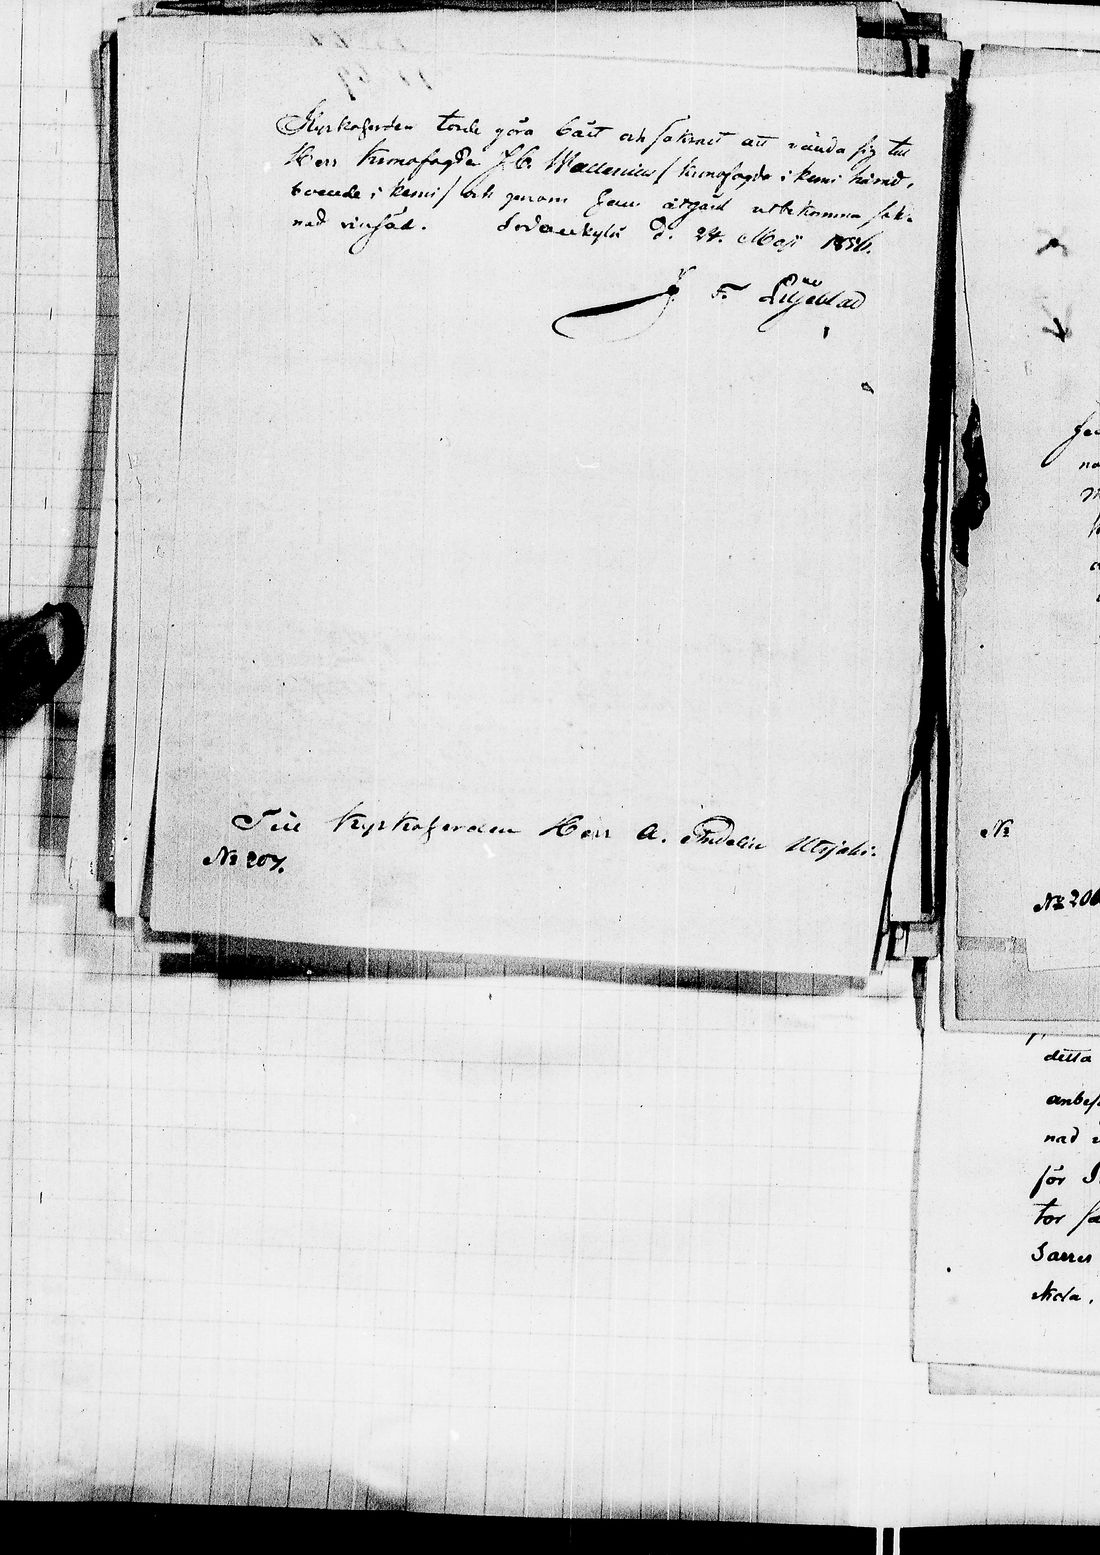 Kyrkoherden torde göra bäst och säkrast att vända sig till
Herr Kronofogde J. C. Wallenius / Kronofogde i Kemi härad,
boende i Kemi / och genom hans åtgärd utbekomma sak-
nad vinsäd. Sodankylä d. 24. Maji 1856.
F. Liljeblad
Till Kyrkoherden Herr A. Andelin Utsjoki.
№ 207.
№
№ 206
detta
nad
för
tor